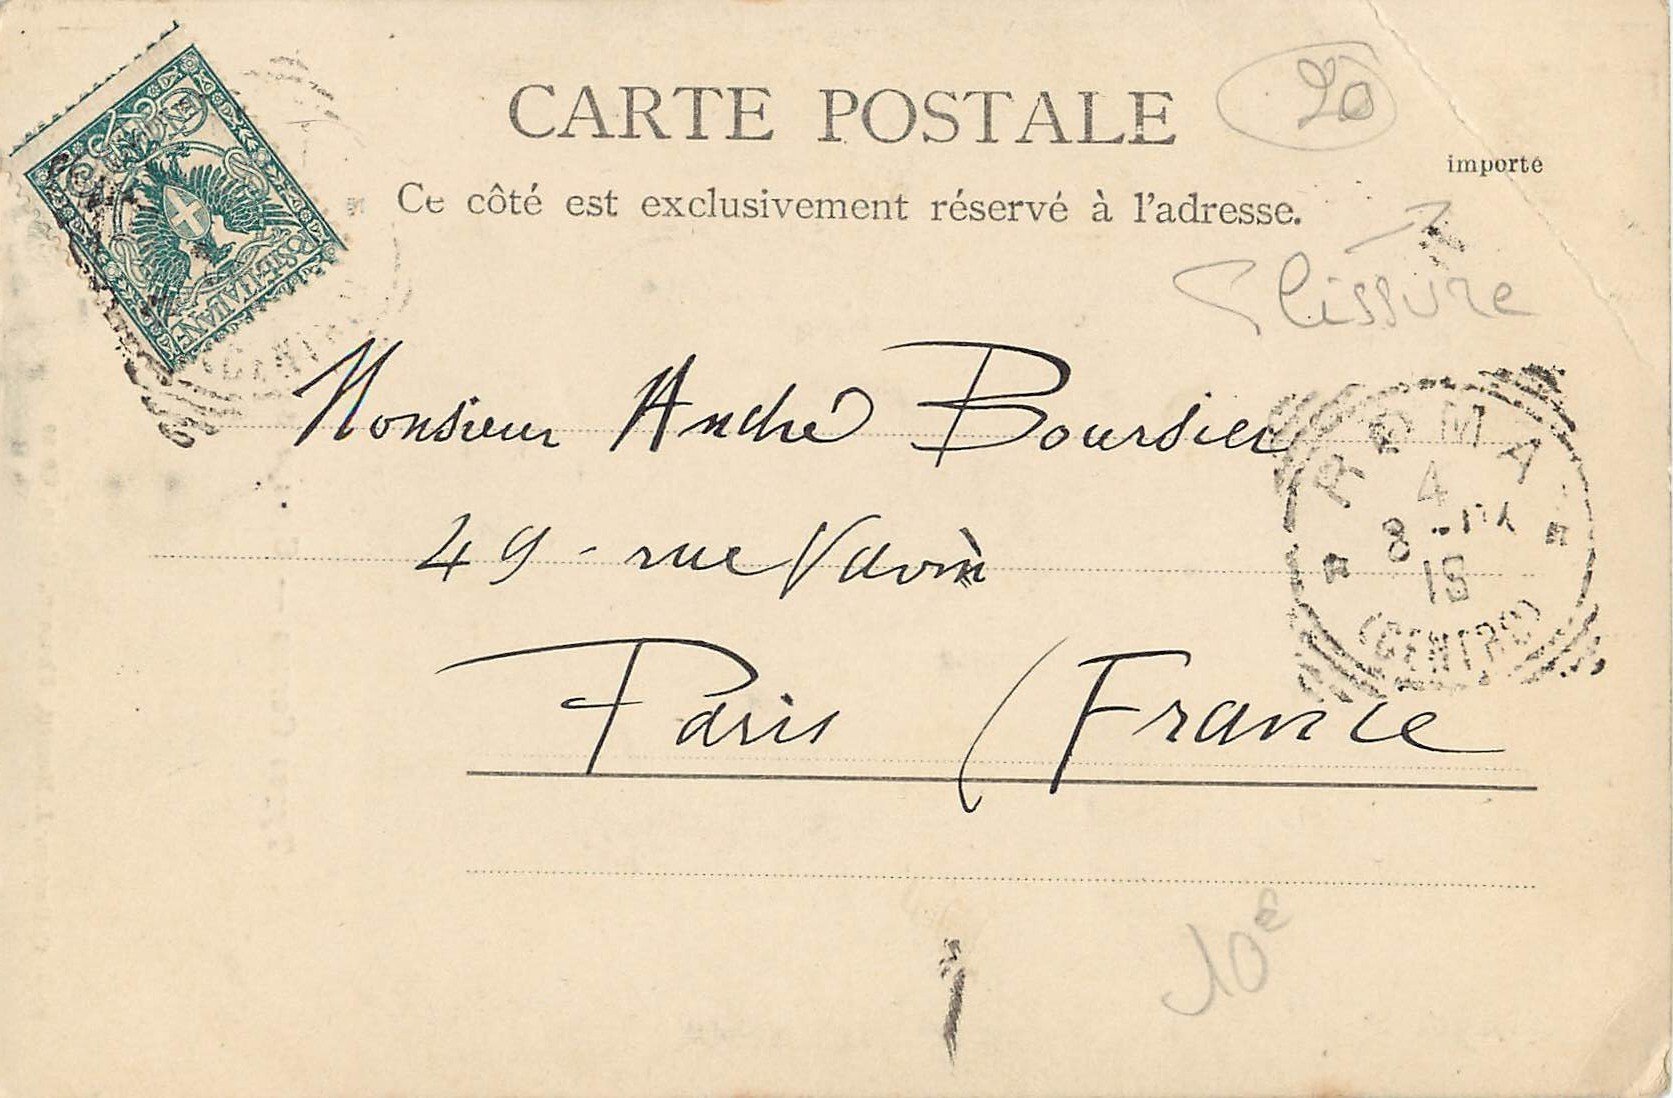 CARTE POSTALE
20
importé
Ce côté est exclusivement réservé à l'adresse.
Plissure
CINQUE
POSTE ITALIANE
Monsieur André Boursier
49 - rue Vavin
Paris (France
ROMA
4
8
(CENTRO)
10€